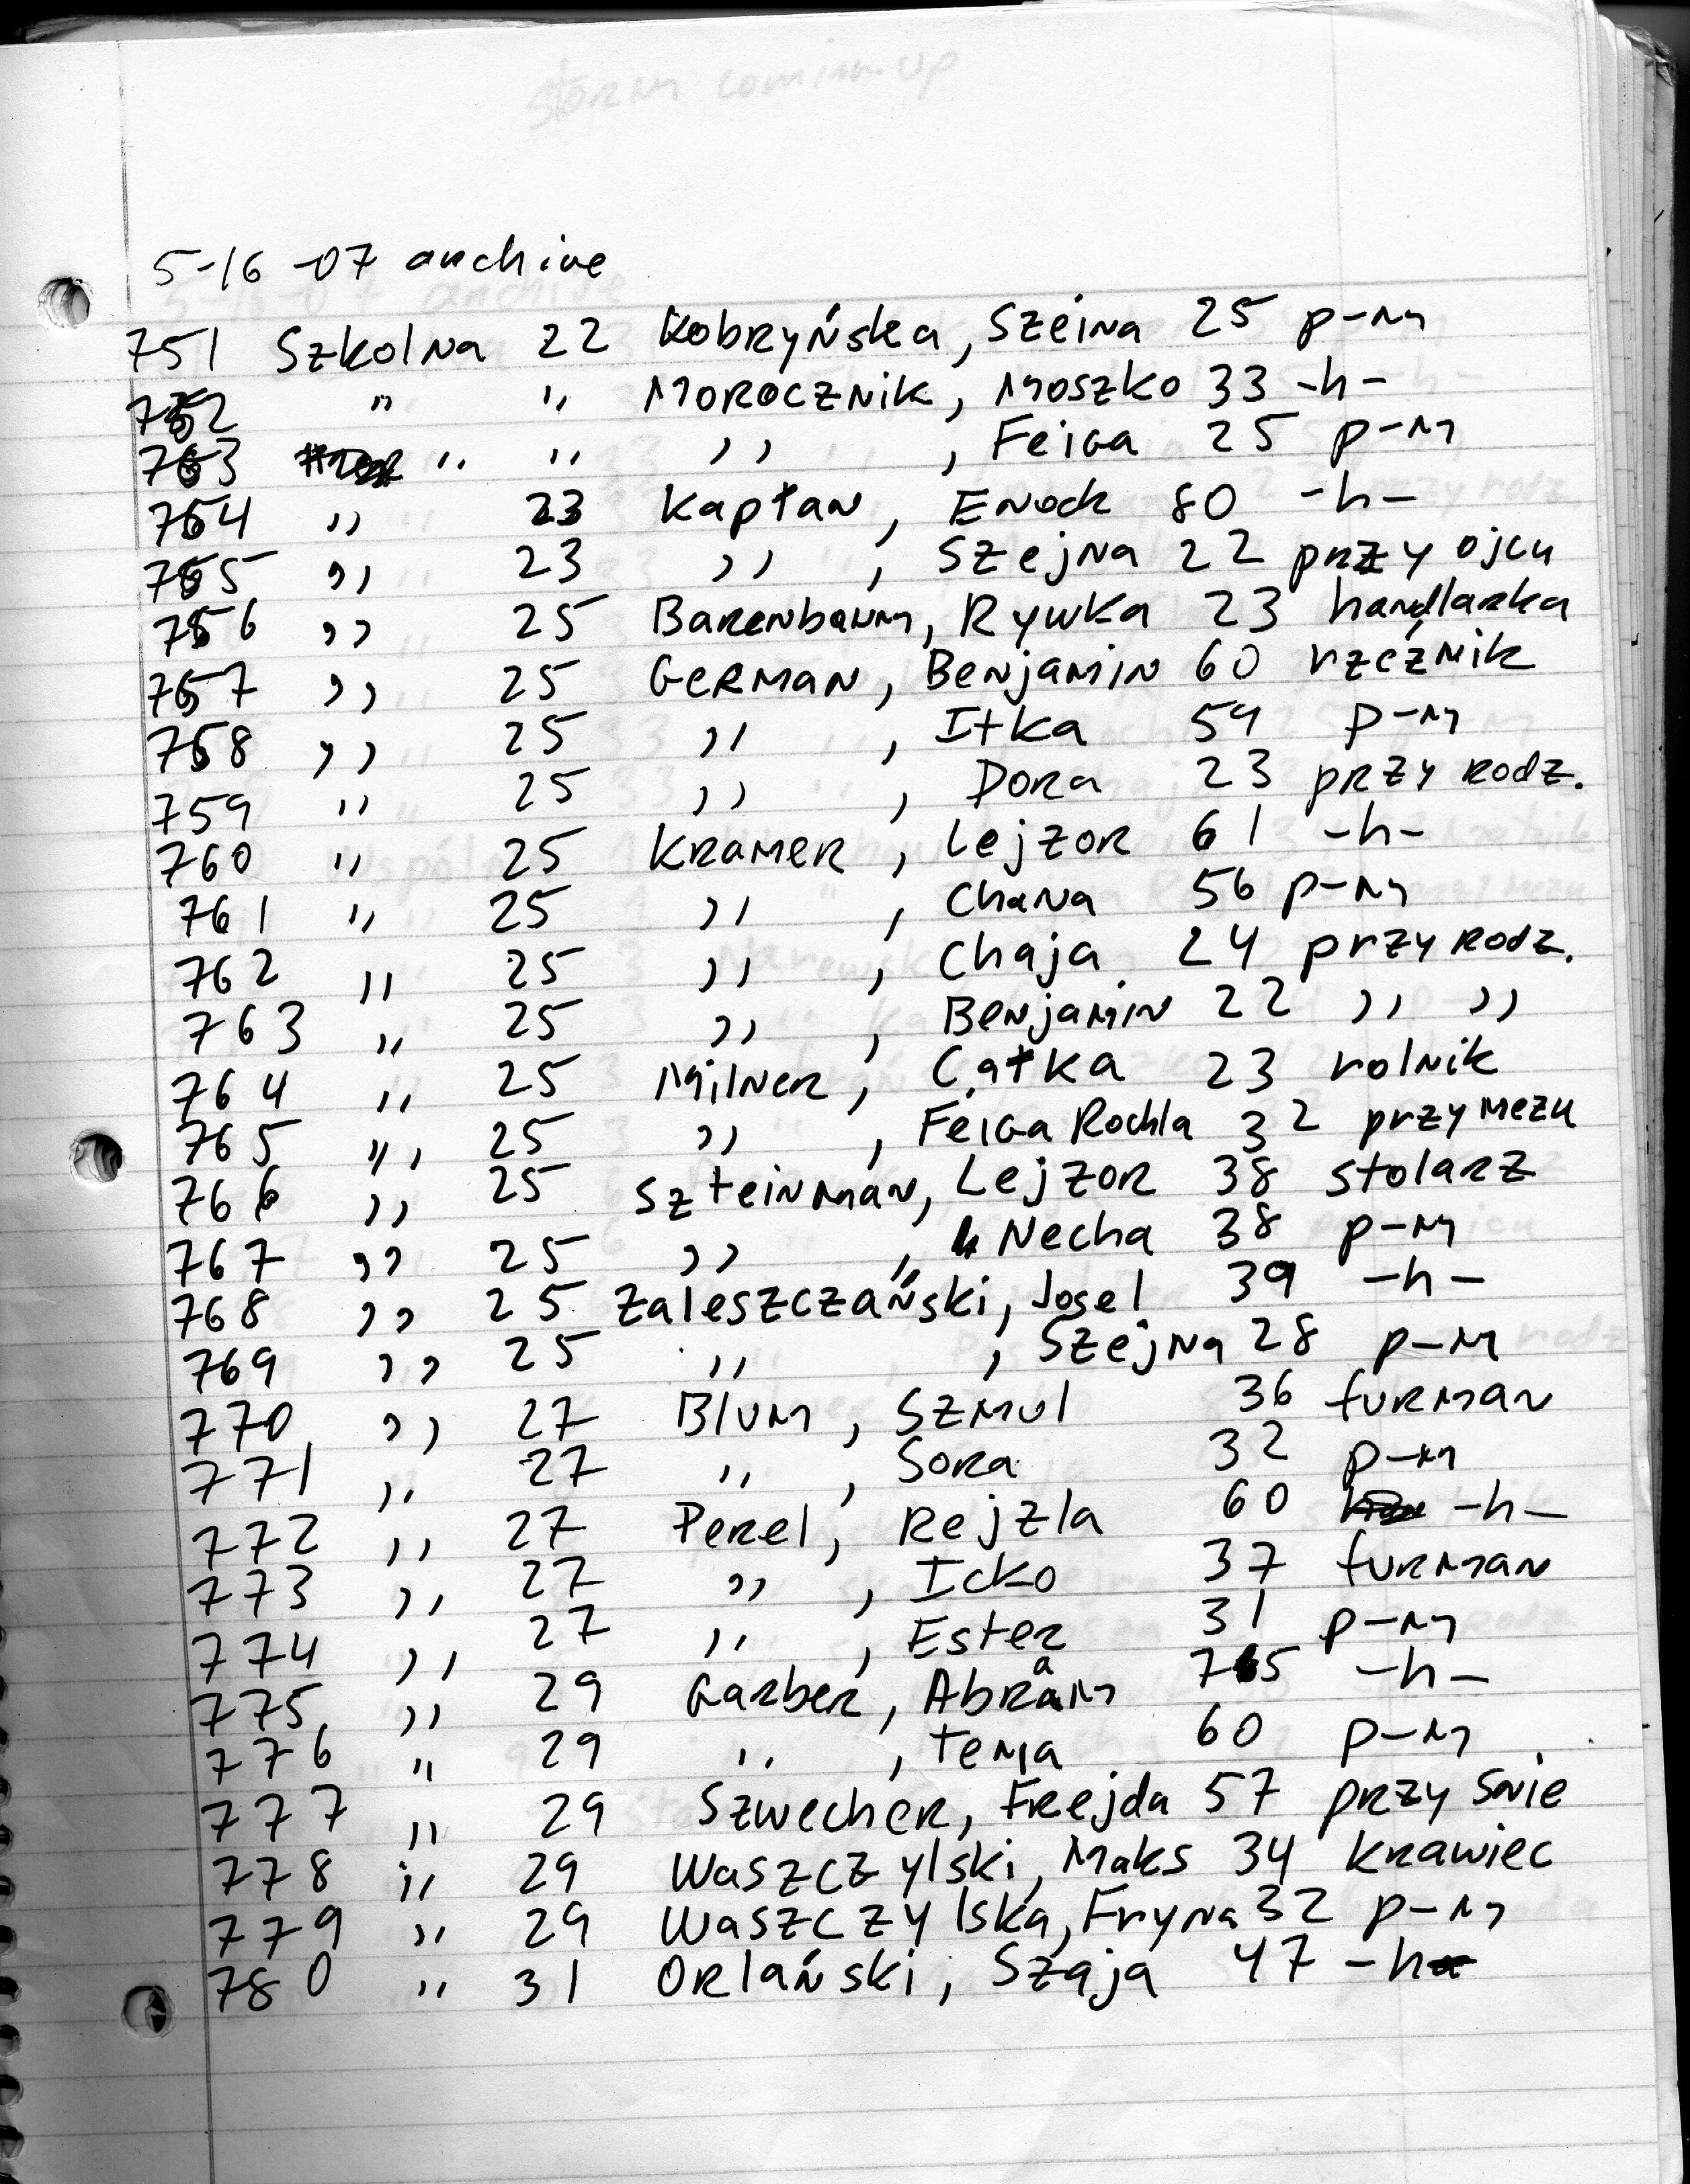 storm comin up
5-16-07 archive
751 Szkolna 22 Kobryńska, Szeina 25 p-m
752 " " Morocznik, Moszko 33 -h-
753 " " " , Feiga 25 p-m
754 " 23 Kapłan, Enoch 80 -h-
755 " 23 " , Szejna 22 przy ojcu
756 " 25 Barenbaum, Rywka 23 handlarka
757 " 25 German, Benjamin 60 rzeźnik
758 " 25 " , Itka 59 p-m
759 " 25 " , Dora 23 przy rodz.
760 " 25 Kramer, Lejzor 61 -h-
761 " 25 " , Chana 56 p-m
762 " 25 " , Chaja 24 przy rodz.
763 " 25 " , Benjamin 22 " "
764 " 25 Milner, Całka 23 rolnik
765 " 25 " , Feiga Rochla 32 przy mezu
766 " 25 Szteinman, Lejzor 38 stolarz
767 " 25 " , Necha 38 p-m
768 " 25 Zaleszczański, Josel 39 -h-
769 " 25 " , Szejna 28 p-m
770 " 27 Blum, Szmul 36 furman
771 " 27 " , Sora 32 p-m
772 " 27 Perel, Rejzla 60 -h-
773 " 27 " , Icko 37 furman
774 " 27 " , Ester 31 p-m
775 " 29 Garber, Abram -h-
776 " 29 " , Tema 60 p-m
777 " 29 Szwecher, Frejda 57 przy Snie
778 " 29 Waszczylski, Maks 34 krawiec
779 " 29 Waszczylska, Fryna 32 p-m
780 " 31 Orlański, Szaja 47 -h-